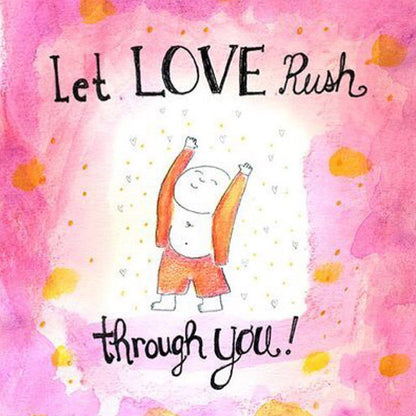 Let LOVE Rush
through you!